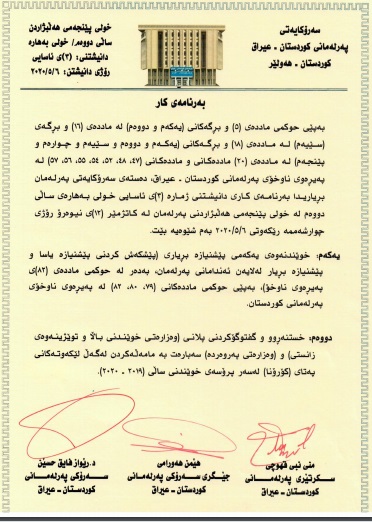 سەرۆکایەتی
پەرلەمانی کوردستان - عیراق
کوردستان - هەولێر
خولی پێنجەمی هەڵبژاردن
ساڵی دووەم/ خولی بەهارە
دانیشتنی: (٣)ی ئاسایی
رۆژی دانیشتن: ٢٠٢٠/٥/٦
بەرنامەی کار
بەپێی حوکمی ماددەی (٥) و برگەکانی (یەکەم و دووەم) لە ماددەی (١٦) و برگەی
(سێیەم) لە ماددەی (١٨) و برگەکانی (یەکەم و دووەم و سێیەم و چوارەم و
پێنجەم) لە ماددەی (٢٠) ماددەکانی و ماددەکانی (٤٧، ٤٨، ٥٢، ٥٤، ٥٥، ٥٦، ٥٧) لە
پەیرەوی ناوخۆی پەرلەمانی کوردستان - عیراق، دەستەی سەرۆکایەتی پەرلەمان
بریاریدا بەرنامەی کاری دانیشتنی ژمارە (٣)ی ئاسایی خولی بەهارەی ساڵی
دووەم لە خولی پێنجەمی هەڵبژاردنی پەرلەمان لە کاتژمێر (١٢)ی نیوەرۆ رۆژی
چوارشەممە رێکەوتی ٢٠٢٠/٥/٦ بەم شێوەیە بێت.
یەکەم: خوێندنەوەی یەکەمی پێشنیازە بریاری (پێشکەش کردنی پێشنیازە یاسا و
پێشنیازە بریار لەلایەن ئەندامانی پەرلەمان، بەدەر لە حوکمی ماددەی (٨٢)ی
پەیرەوی ناوخۆ)، بەپێی حوکمی ماددەکانی (٧٩، ٨٠، ٨٢) لە پەیرەوی ناوخۆی
پەرلەمانی کوردستان.
دووەم: خستنەروو و گفتوگۆکردنی پلانی (وەزارەتی خوێندنی باڵا و توێژینەوەی
زانستی) و (وەزارەتی پەروەردە) سەبارەت بە مامەڵەکردن لەگەڵ لێکەوتەکانی
پەتای (کۆرۆنا) لەسەر پرۆسەی خوێندنی ساڵی (٢٠١٩ - ٢٠٢٠).
منی نبی قهوچی
سکرتێری پەرلەمانی
کوردستان - عیراق
هێمن هەورامی
جێگری سەرۆکی پەرلەمانی
کوردستان - عیراق
د.رێواز فایق حسێن
سەرۆکی پەرلەمانی
کوردستان - عیراق